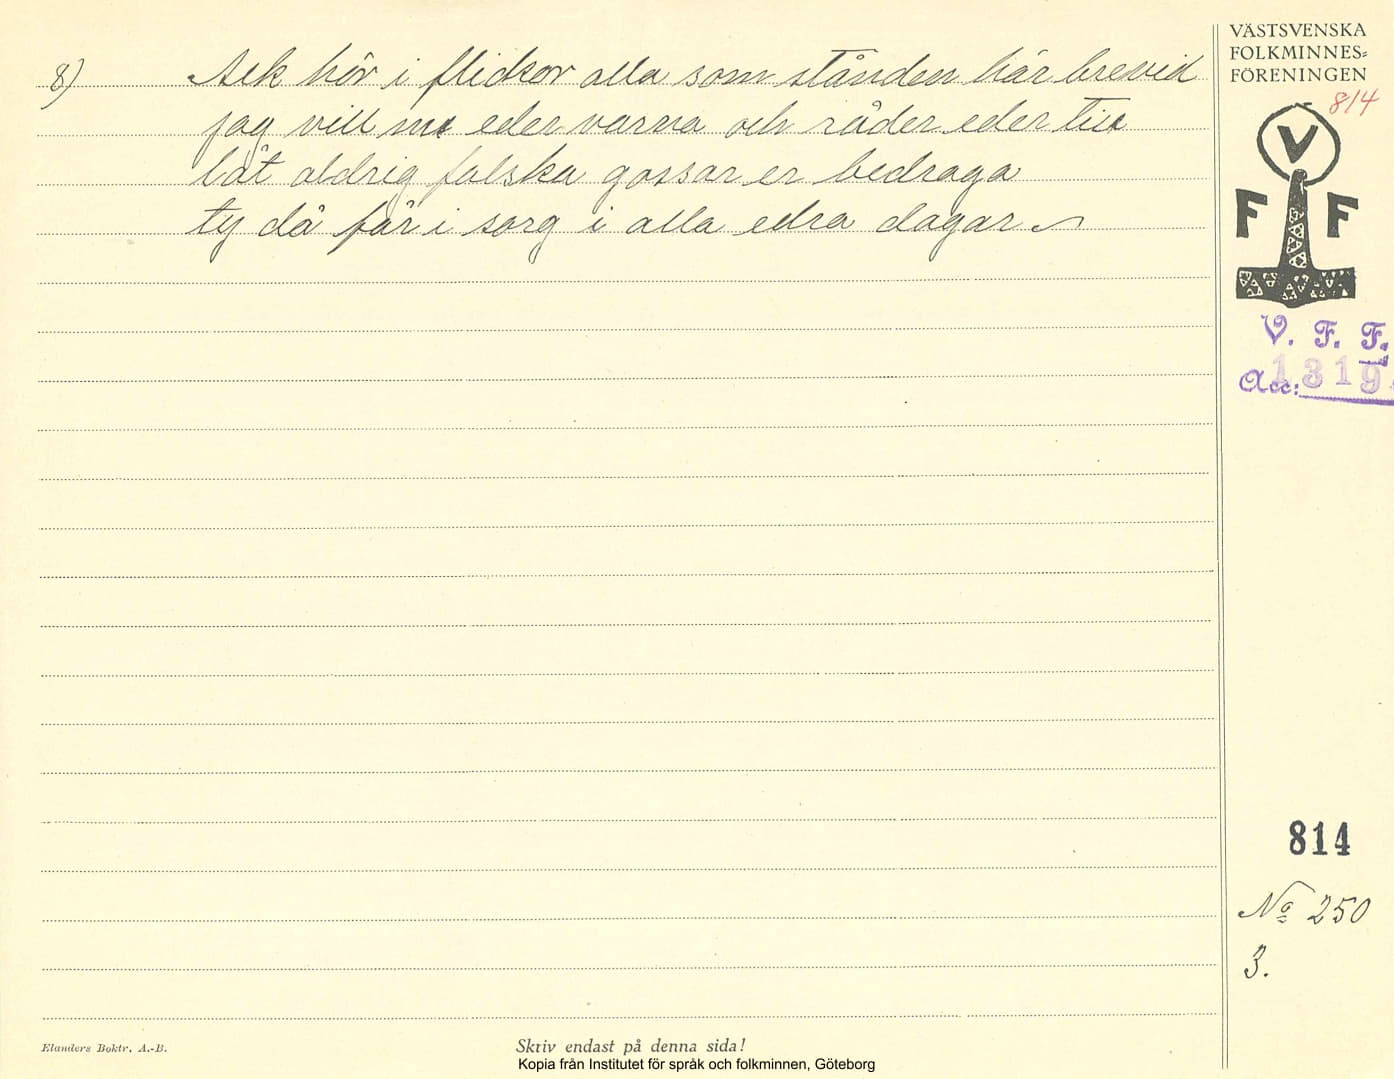 8) Ack hör i flickor alla som stånden här brevid
jag vill nu eder varna och råder eder till
låt aldrig falska gossar er bedraga
ty då får i sorg i alla edra dagar
VÄSTSVENSKA
FOLKMINNES-
FÖRENINGEN
814
V
F F
V. F. F.
Acc: 1319
814
No 250
3.
Elanders Boktr. A.-B.
Skriv endast på denna sida!
Kopia från Institutet för språk och folkminnen, Göteborg